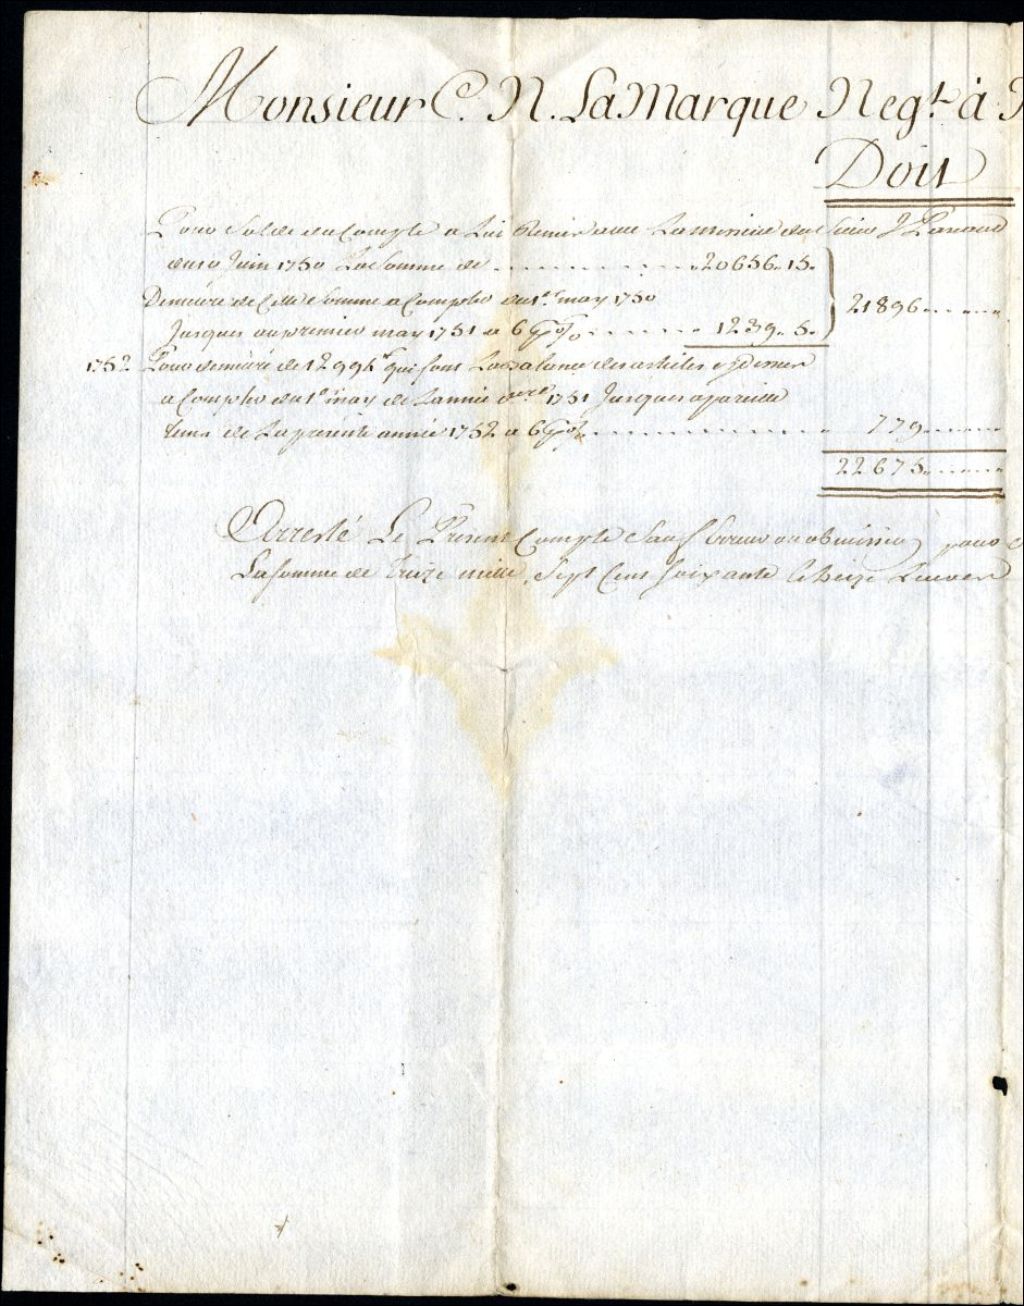 Monsieur C. N. La Marque Negt. à
Doit
Pour Solde du Compte a Lui Remis sieur
du 19 Juin 1750 La Somme de 20656. 15.
Demiere de Cette Somme a Compter du 1er. may 1750 21896
Jusques au premier may 1751 a 6 P% 1239. 5.
1752 Pour demiere de 12994 qui font La Balance des articles cy dernier
a Compter du 1er may de L'année 1751 Jusques a pareille
tems de La présente année 1752 a 6 P% 779
22675
Arresté Le Présent Compte Sauf Erreur ou obmission pour
La somme de treize mille Sept Cent Soixante & Seize Livres